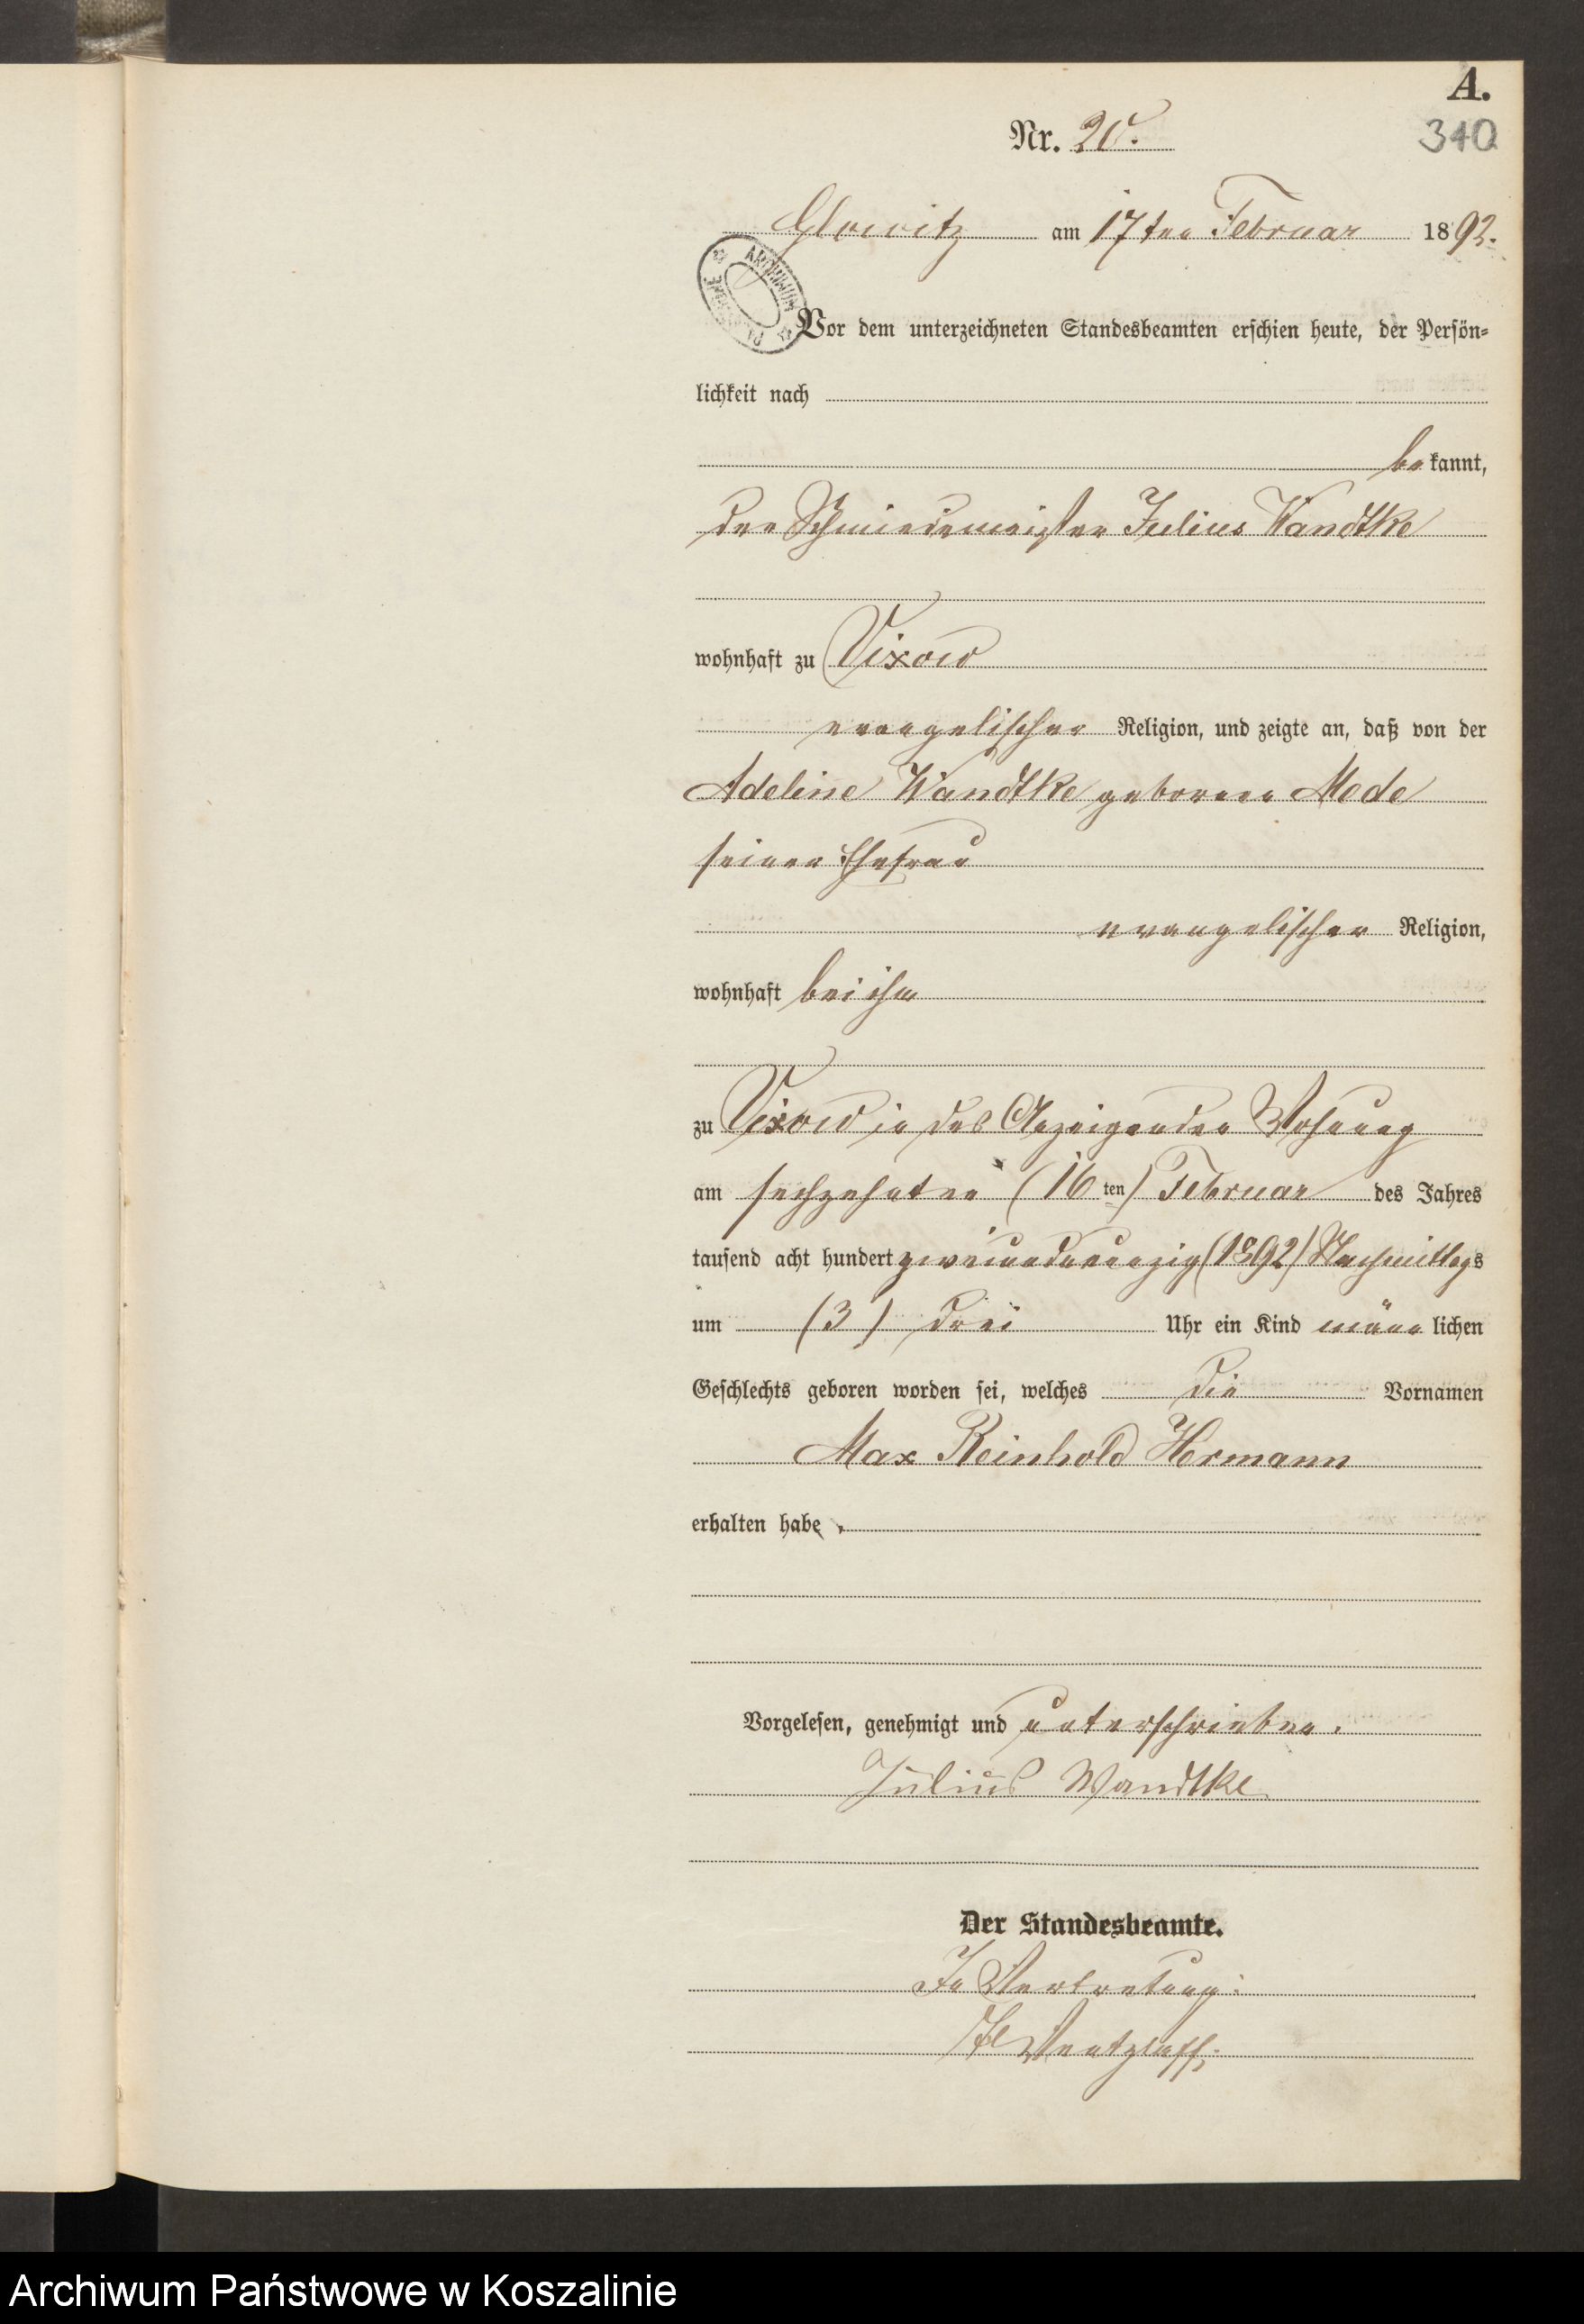 A.
Nr. 20.
340
Glowitz am 17ten Februar 1892.
Vor dem unterzeichneten Standesbeamten erschien heute, der Persön-
lichkeit nach
bekannt,
der Schmiedemeister Julius Wandtke
wohnhaft zu Vixow
evangelischer Religion, und zeigte an, daß von der
Adeline Wandtke geborenen Mode
seiner Ehefrau
evangelischer Religion,
wohnhaft bei ihm
zu Vixow in des Anzeigenden Wohnung
am sechzehnten (16ten) Februar des Jahres
tausend acht hundert zweiundneunzig (1892) Nachmittags
um (3) drei Uhr ein Kind männlichen
Geschlechts geboren worden sei, welches die Vornamen
Max Reinhold Hermann
erhalten habe.
Vorgelesen, genehmigt und unterschrieben.
Julius Wandtke
Der Standesbeamte.
In Vertretung:
Ventzlaff.
Archiwum Państwowe w Koszalinie